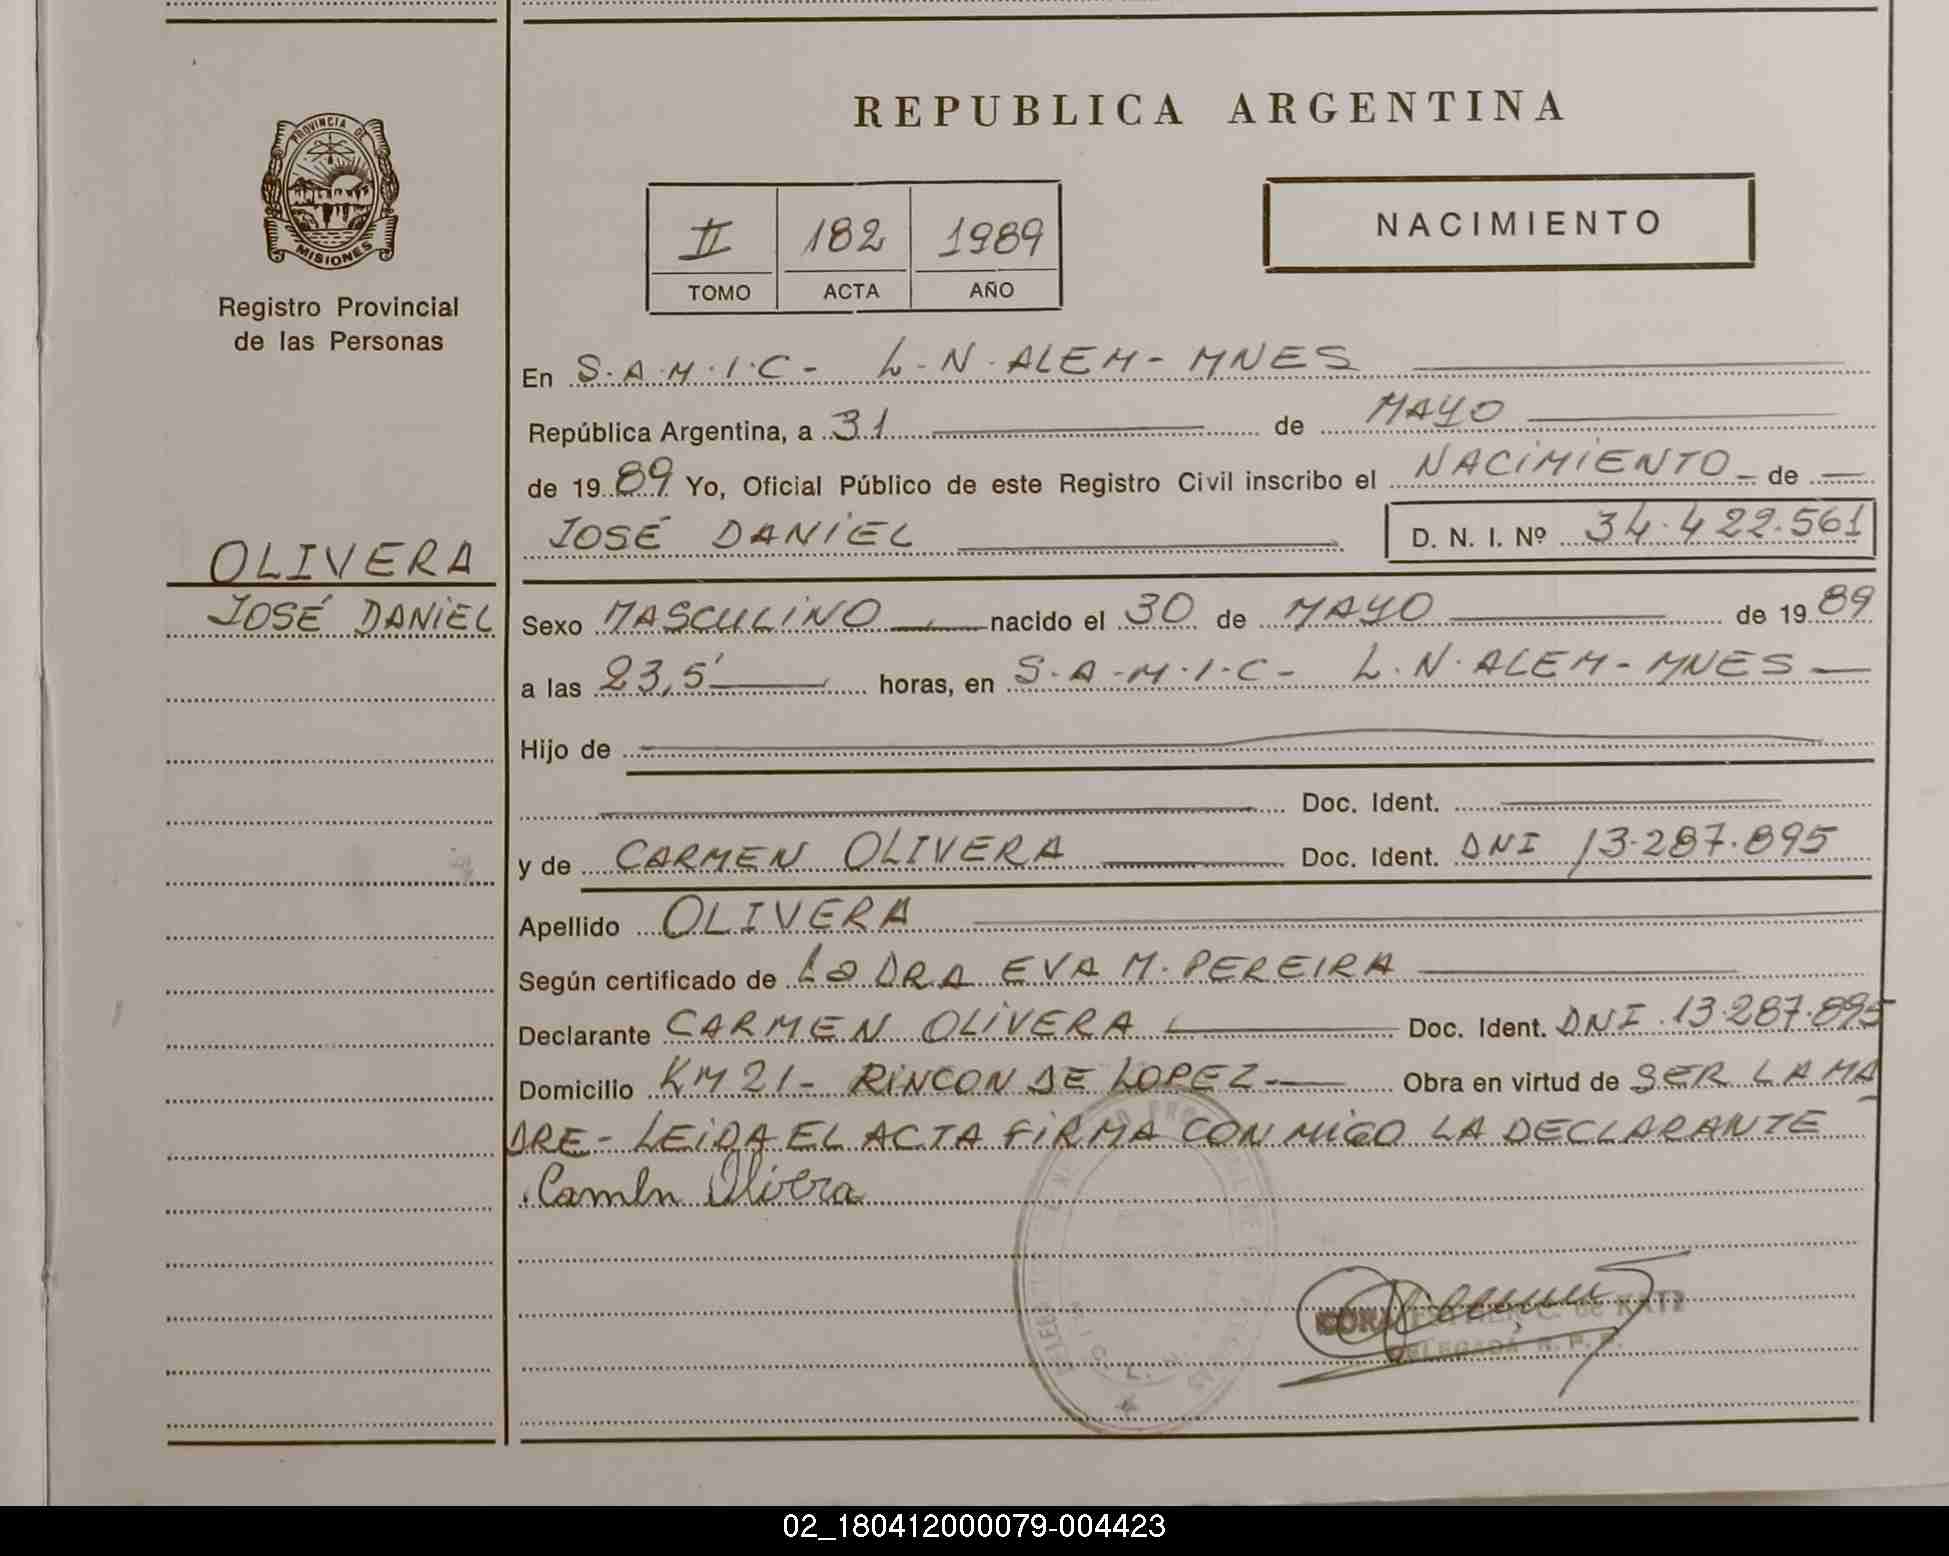 REPUBLICA ARGENTINA
PROVINCIA DE
MISIONES
Registro Provincial
de las Personas
II 182 1989
TOMO ACTA AÑO
NACIMIENTO
En S.A.M.I.C- L.N.ALEM-MNES
República Argentina, a 31 de MAYO
de 1989 Yo, Oficial Público de este Registro Civil inscribo el NACIMIENTO de
JOSÉ DANIEL D. N. I. Nº 34.422.561
OLIVERA
JOSÉ DANIEL
Sexo MASCULINO nacido el 30 de MAYO de 1989
a las 23,5' horas, en S.A.M.I.C- L.N.ALEM-MNES
Hijo de
Doc. Ident.
y de CARMEN OLIVERA Doc. Ident. DNI 13.287.895
Apellido OLIVERA
Según certificado de La DRA EVA M. PEREIRA
Declarante CARMEN OLIVERA Doc. Ident. DNI.13.287.895
Domicilio KM 21- RINCON DE LOPEZ- Obra en virtud de SER LA MA
DRE- LEIDA EL ACTA FIRMA CONMIGO LA DECLARANTE
Carmen Olivera
DELEGADA R. P. P.
02_180412000079-004423